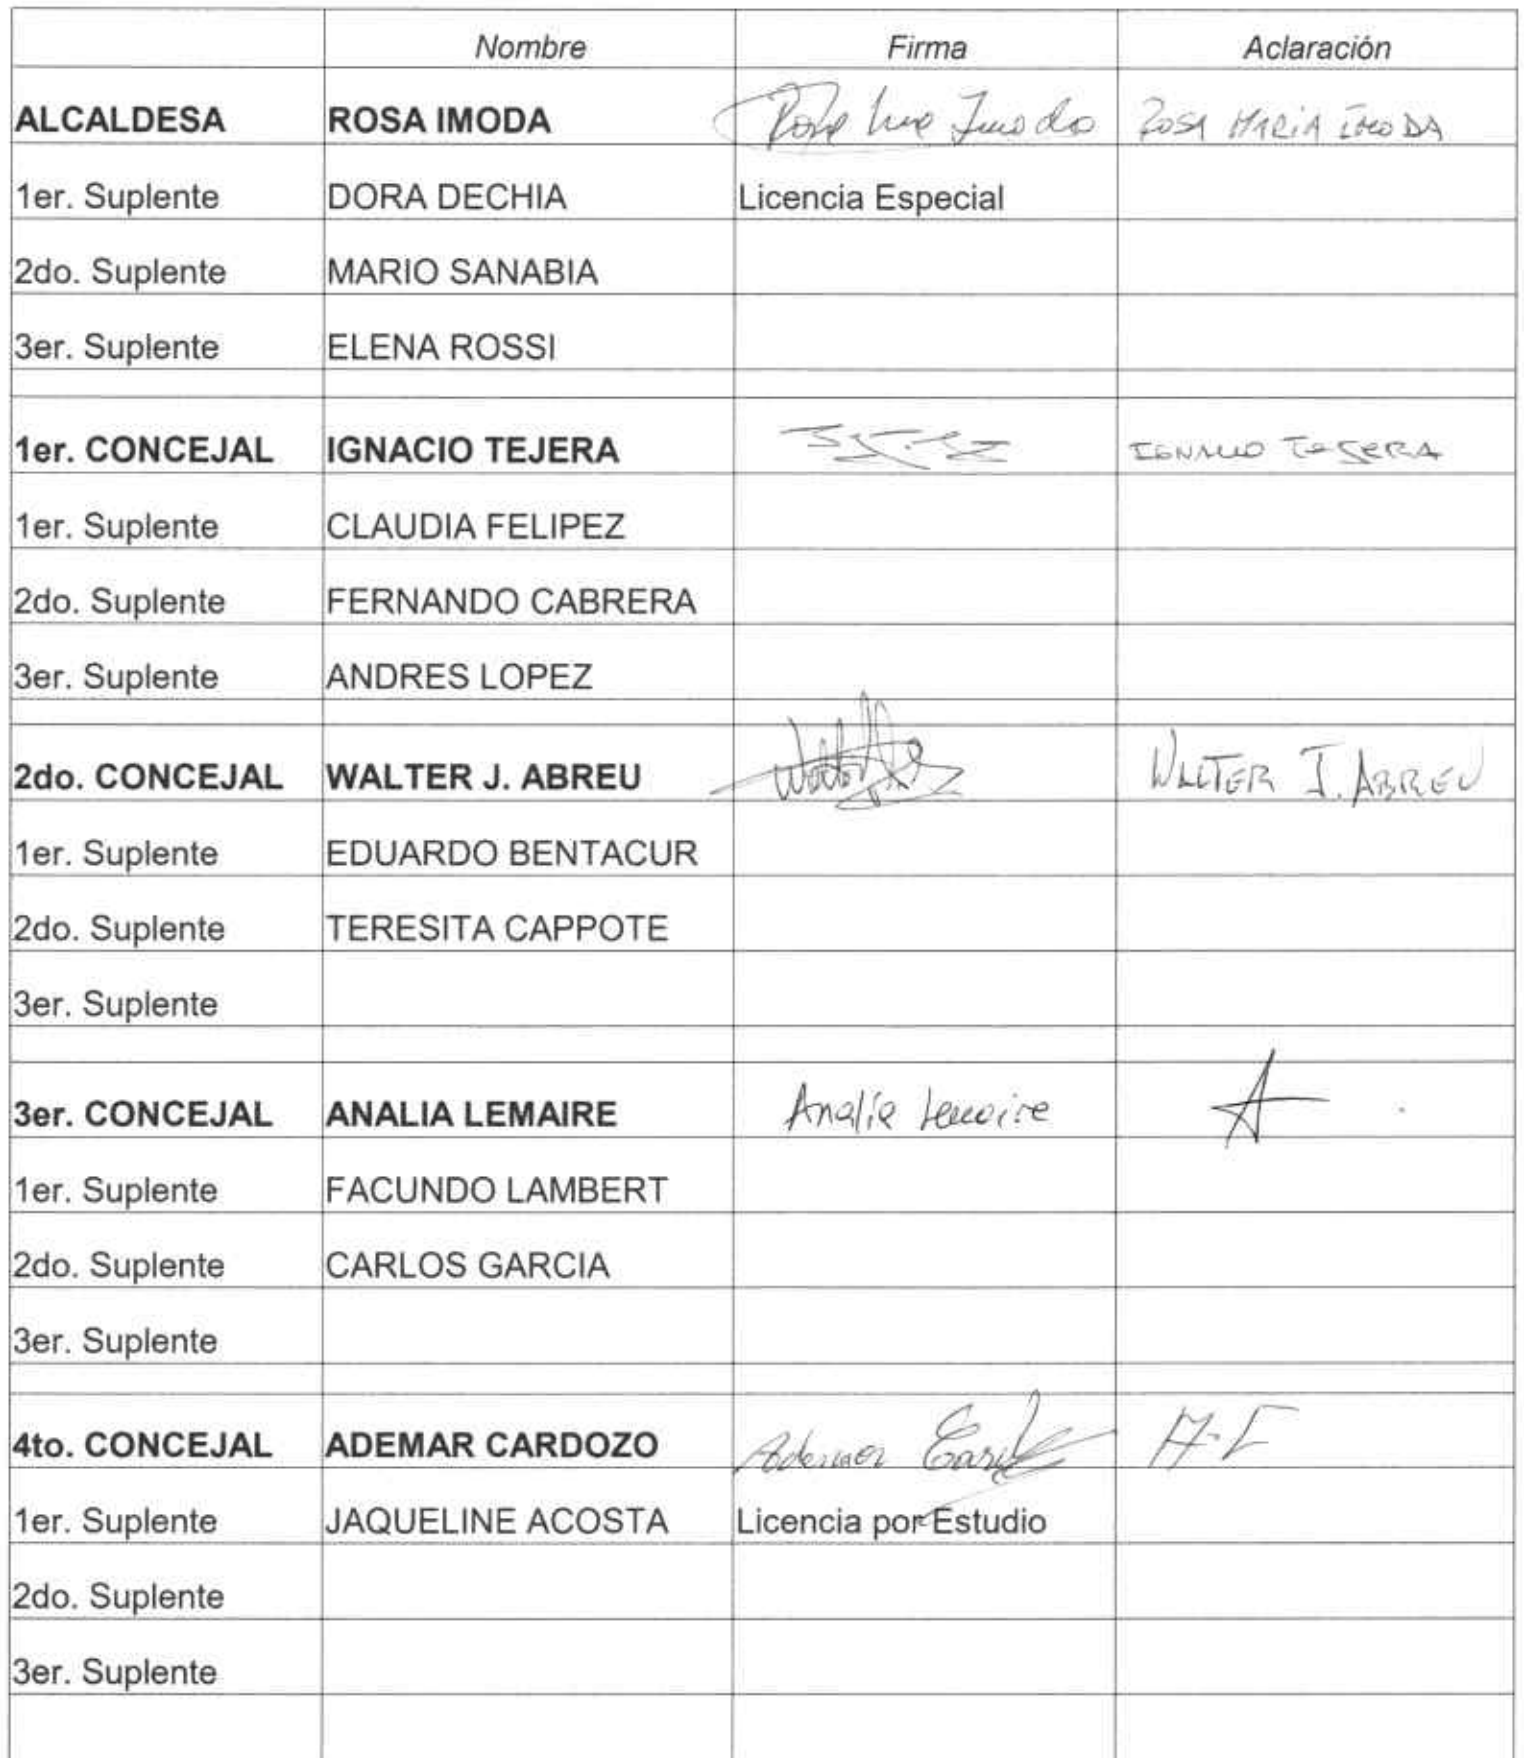 Nombre Firma Aclaración
ALCALDESA ROSA IMODA ROSA MARIA IMODA
1er. Suplente DORA DECHIA Licencia Especial
2do. Suplente MARIO SANABIA
3er. Suplente ELENA ROSSI
1er. CONCEJAL IGNACIO TEJERA IGNACIO TEJERA
1er. Suplente CLAUDIA FELIPEZ
2do. Suplente FERNANDO CABRERA
3er. Suplente ANDRES LOPEZ
2do. CONCEJAL WALTER J. ABREU WALTER J. ABREU
1er. Suplente EDUARDO BENTACUR
2do. Suplente TERESITA CAPPOTE
3er. Suplente
3er. CONCEJAL ANALIA LEMAIRE Analia Lemaire A
1er. Suplente FACUNDO LAMBERT
2do. Suplente CARLOS GARCIA
3er. Suplente
4to. CONCEJAL ADEMAR CARDOZO Ademar
1er. Suplente JAQUELINE ACOSTA Licencia por Estudio
2do. Suplente
3er. Suplente